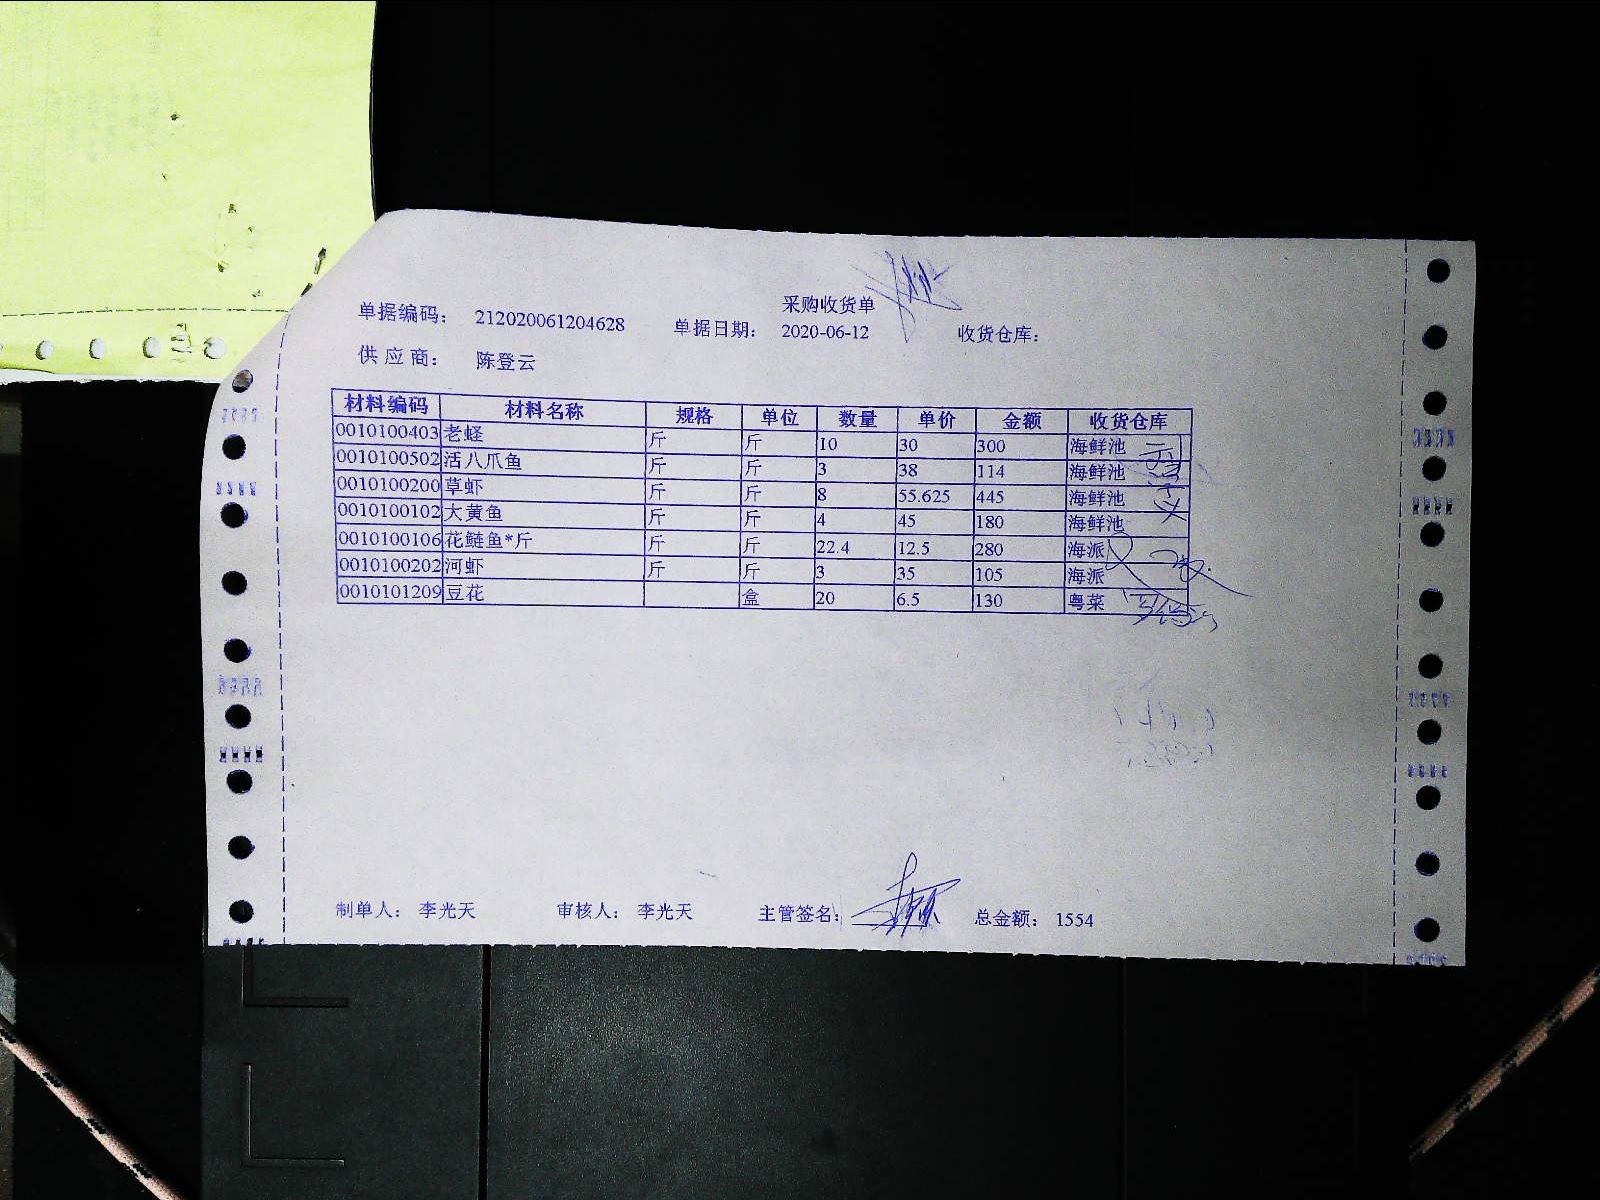 采购收货单
单据编码： 212020061204628 单据日期： 2020-06-12 收货仓库：
供应商： 陈登云
材料编码 材料名称 规格 单位 数量 单价 金额 收货仓库
0010100403 老蛏 斤 斤 10 30 300 海鲜池
0010100502 活八爪鱼 斤 斤 3 38 114 海鲜池
0010100200 草虾 斤 斤 8 55.625 445 海鲜池
0010100102 大黄鱼 斤 斤 4 45 180 海鲜池
0010100106 花鲢鱼*斤 斤 斤 22.4 12.5 280 海派
0010100202 河虾 斤 斤 3 35 105 海派
0010101209 豆花 盒 20 6.5 130 粤菜
制单人： 李光天 审核人： 李光天 主管签名： 总金额： 1554